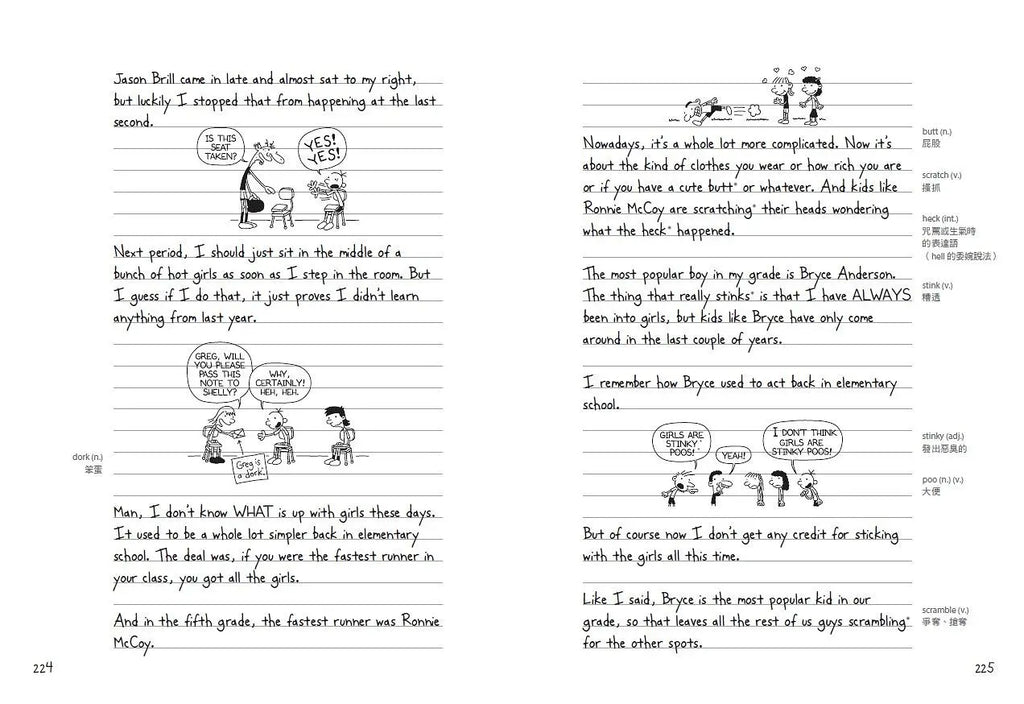 Jason Brill came in late and almost sat to my right,
but luckily I stopped that from happening at the last
second.
IS THIS
SEAT
TAKEN?
YES!
YES!
Next period, I should just sit in the middle of a
bunch of hot girls as soon as I step in the room. But
I guess if I do that, it just proves I didn't learn
anything from last year.
GREG, WILL
YOU PLEASE
PASS THIS
NOTE TO
SHELLY?
WHY,
CERTAINLY!
HEH, HEH.
Greg is
a dork.
dork (n.)
笨蛋
Man, I don't know WHAT is up with girls these days.
It used to be a whole lot simpler back in elementary
school. The deal was, if you were the fastest runner in
your class, you got all the girls.
And in the fifth grade, the fastest runner was Ronnie
McCoy.
224
Nowadays, it's a whole lot more complicated. Now it's
about the kind of clothes you wear or how rich you are
or if you have a cute butt* or whatever. And kids like
Ronnie McCoy are scratching* their heads wondering
what the heck* happened.
butt (n.)
屁股
scratch (v.)
搔抓
heck (int.)
咒罵或生氣時
的表達語
（hell 的委婉說法）
The most popular boy in my grade is Bryce Anderson.
The thing that really stinks* is that I have ALWAYS
been into girls, but kids like Bryce have only come
around in the last couple of years.
stink (v.)
糟透
I remember how Bryce used to act back in elementary
school.
GIRLS ARE
STINKY*
POOS!*
YEAH!
I DON'T THINK
GIRLS ARE
STINKY POOS!
stinky (adj.)
發出惡臭的
poo (n.) (v.)
大便
But of course now I don't get any credit for sticking
with the girls all this time.
Like I said, Bryce is the most popular kid in our
grade, so that leaves all the rest of us guys scrambling*
for the other spots.
scramble (v.)
爭奪、搶奪
225